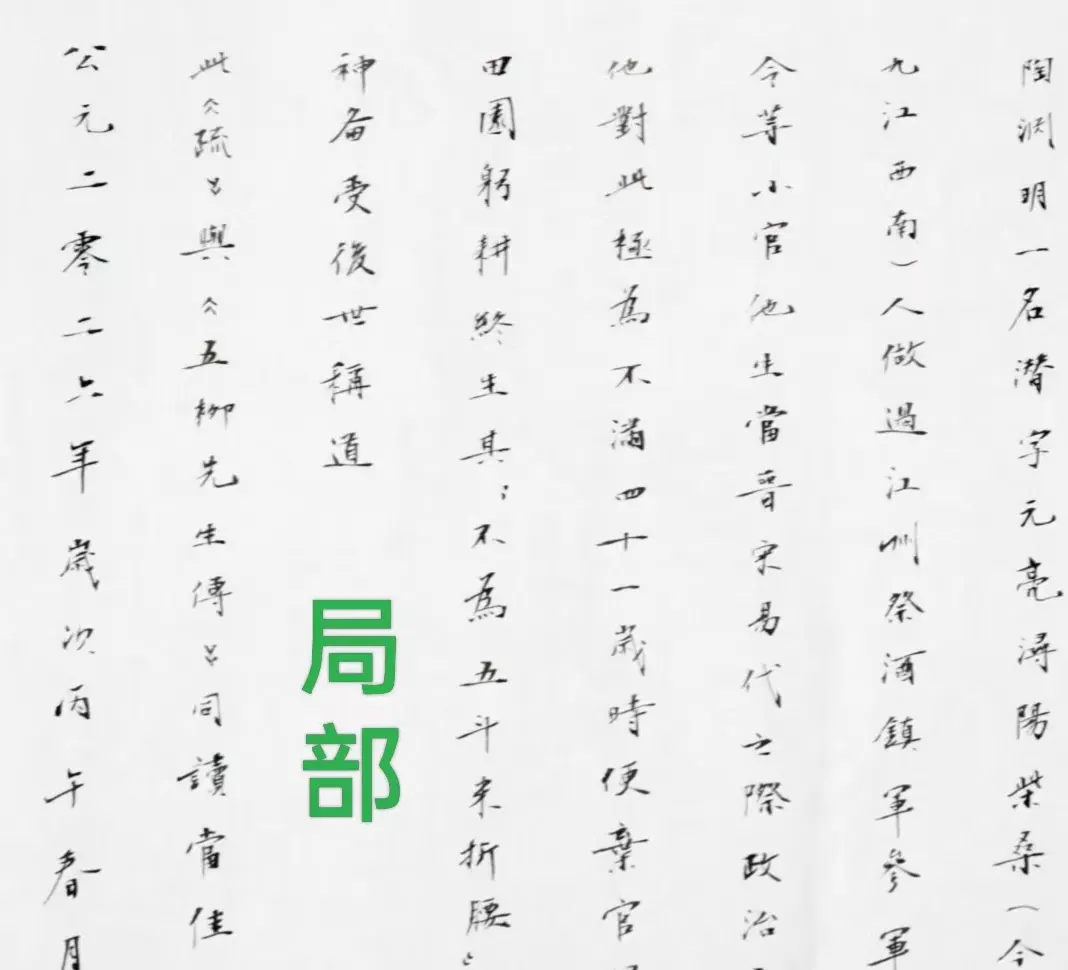 陶渊明一名潜字元亮浔陽柴桑（今
九江西南）人做過江州祭酒鎮軍參軍
令等小官他生當晋宋易代之際政治
他對此極為不滿四十一歲時便棄官
田園躬耕終生其：不為五斗米折腰：
神备受後世稱道
此《疏》與《五柳先生傳》同讀當佳
公元二零二六年歲次丙午春月
局部